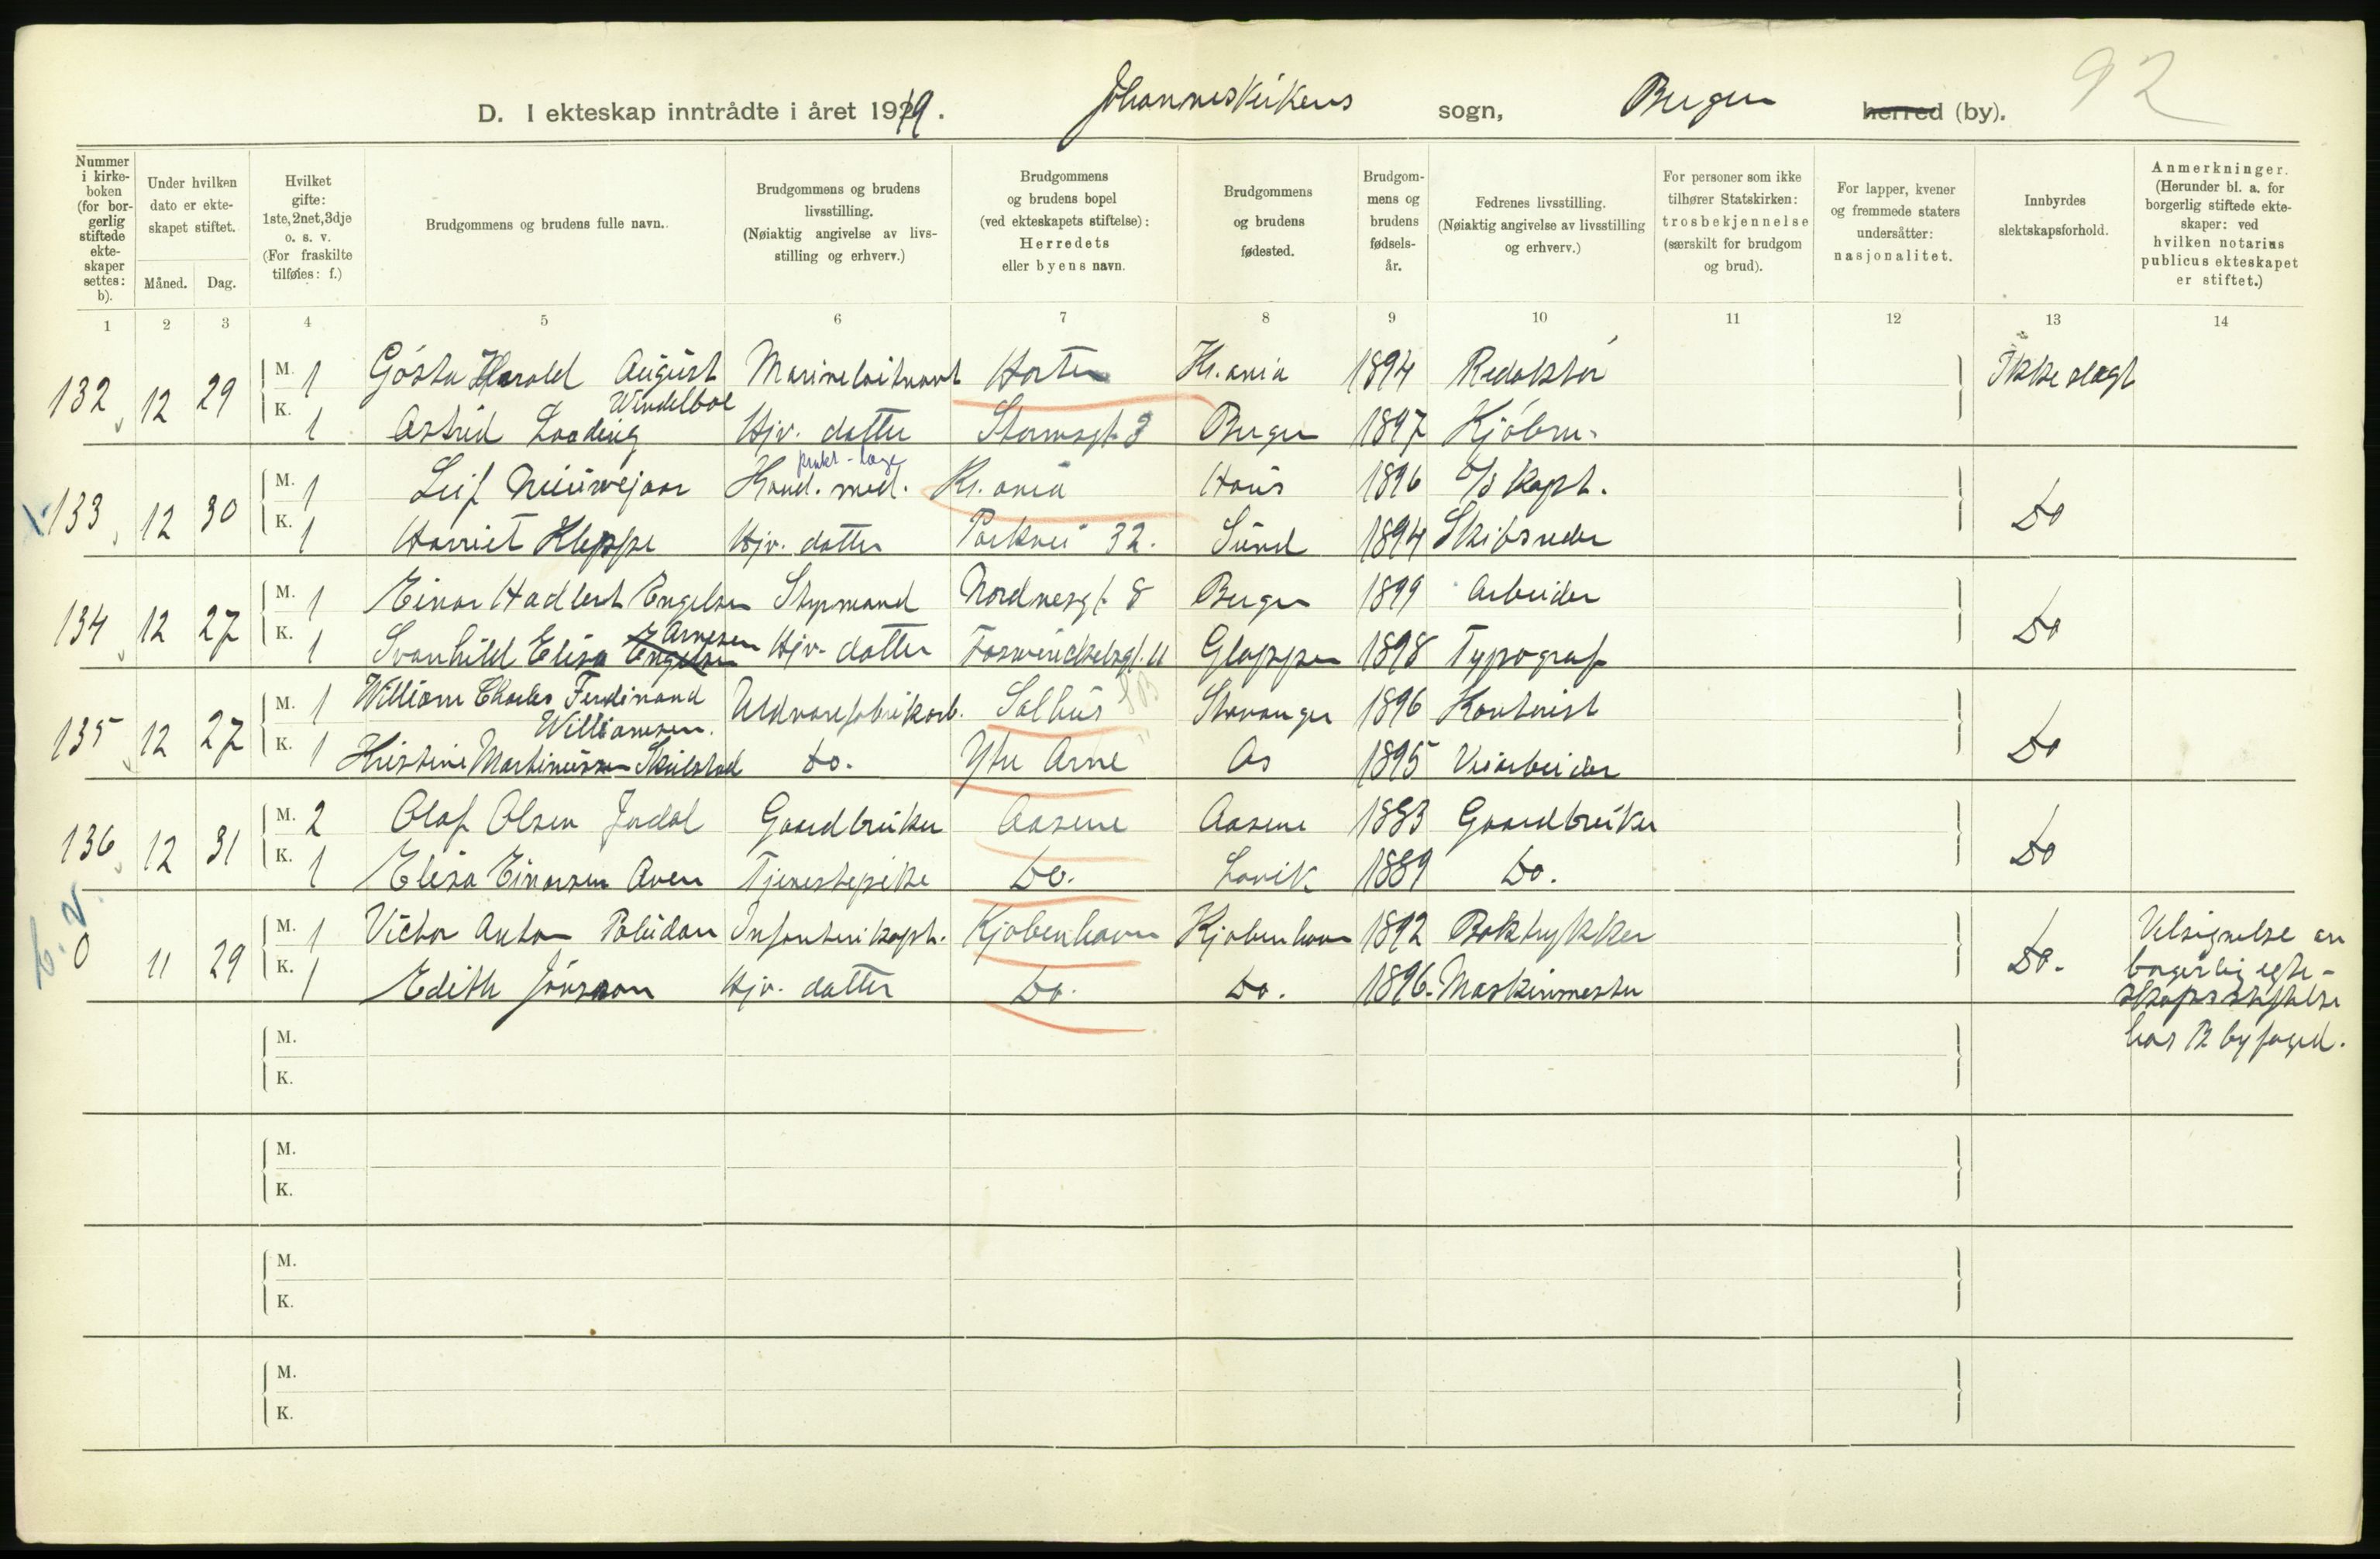 92
D. I ekteskap inntrådte i året 1919. Johanneskirkens sogn, Bergen herred (by).
Nummer i kirkeboken (for borgerlig stiftede ekteskaper settes: b).
Under hvilken dato er ekteskapet stiftet.
Måned. Dag.
Hvilket gifte: 1ste, 2net, 3dje o. s. v. (For fraskilte tilføies: f.)
Brudgommens og brudens fulle navn.
Brudgommens og brudens livsstilling. (Nøiaktig angivelse av livsstilling og erhverv.)
Brudgommens og brudens bopel (ved ekteskapets stiftelse): Herredets eller byens navn.
Brudgommens og brudens fødested.
Brudgommens og brudens fødselsår.
Fedrenes livsstilling. (Nøiaktig angivelse av livsstilling og erhverv.)
For personer som ikke tilhører Statskirken: trosbekjennelse (særskilt for brudgom og brud).
For lapper, kvener og fremmede staters undersåtter: nasjonalitet.
Innbyrdes slektskapsforhold.
Anmerkninger. (Herunder bl. a. for borgerlig stiftede ekteskaper: ved hvilken notarius publicus ekteskapet er stiftet.)
1 2 3 4 5 6 7 8 9 10 11 12 13 14
132 12 29 M. 1 Gösta Harald August Wendelboe Marineløitnant Horten Kr.ania 1894 Redaktör Ikke slægt
K. 1 Astrid Looding Hjv. datter Stormsgt. 3 Bergen 1897 Kjöbm.
133 12 30 M. 1 Leif Nieuwejaar Kand. med. prakt-læge Kr.ania Haus 1896 D/S kapt. Do
K. 1 Harriet Kleppe Hjv. datter Parkvei 32. Sund 1894 Skibsreder
134 12 27 M. 1 Einar Hadlert Engelsen Styrmand Nordnesgt. 8 Bergen 1899 Arbeider Do
K. 1 Svanhild Elisa Engelsen Arnesen Hjv. datter Gloppen 1898 Typograf
135 12 27 M. 1 William Charles Ferdinand Williamsen. Uldvarefabrikarb. Salhus Stavanger 1896 Kontorist Do
K. 1 Kristine Martinussen Skulstad Do. Ytre Arne Os 1895 Veiarbeider
136 12 31 M. 2 Olaf Olsen Jordal Gaardbruker Aasene Aasene 1883 Gaardbruker Do
K. 1 Elisa Einarsen Aven Tjenestepike Do. Lavik 1889 Do.
0 11 29 M. 1 Victor Anton Paludan Infanterikapt. Kjøbenhavn Kjøbenhavn 1892 Boktrykker Do. Velsignelse av borgerlig egteskapsstiftelse hos B byfoged.
K. 1 Edith Jönsson Hjv. datter Do. Do. 1896. Maskinmester
M.
K.
M.
K.
M.
K.
M.
K.